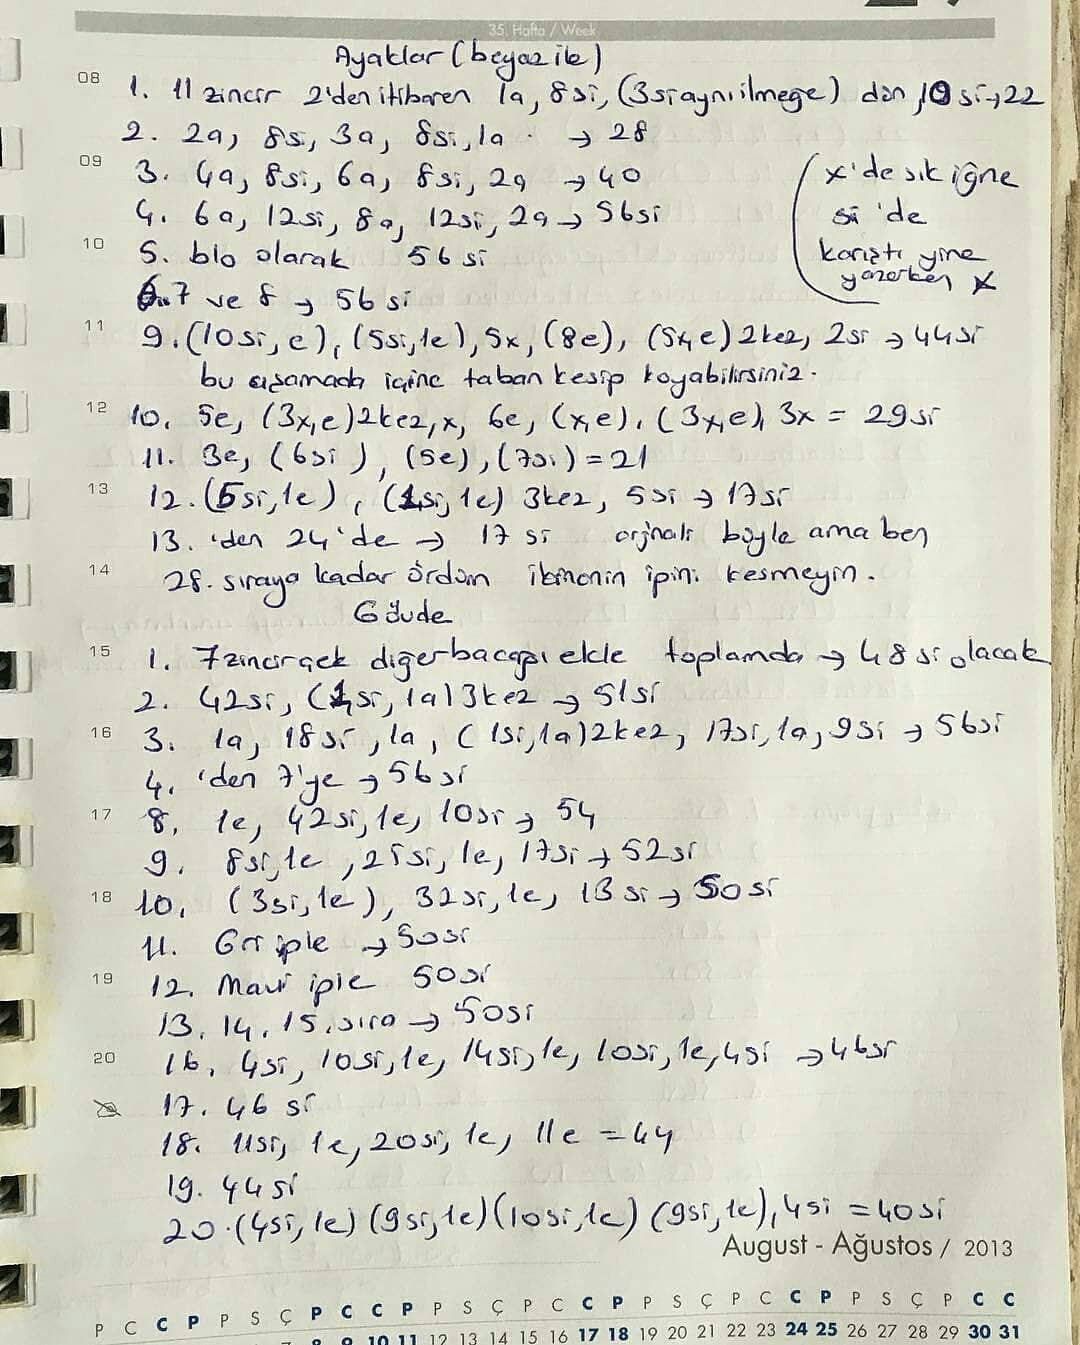 35. Hafta / Week
Ayaklar (beyaz ile)
08
1. 11 zincir 2'den itibaren 1a, 8si, (3si aynı ilmeğe) dan, 10si → 22
2. 2a, 8si, 3a, 8si, 1a → 28
09
3. 4a, 8si, 6a, 8si, 2a → 40
4. 6a, 12si, 8a, 12si, 2a → 56si
x'de sık iğne
si 'de
karıştı yine
yazarken x
10
5. blo olarak 56 si
6.7 ve 8 → 56 si
11
9. (10si, e), (5si, 1e), 5x, (8e), (5x, e) 2kez, 2si → 44si
bu aşamada içine taban kesip koyabilirsiniz.
12
10. 5e, (3x, e) 2kez, x, 6e, (x, e), (3x, e), 3x = 29si
11. 3e, (6si), (5e), (7si) = 21
13
12. (5si, 1e), (1si, 1e) 3kez, 5si → 17si
13. 'den 24'de → 17 si orjnali böyle ama ben
14
28. sıraya kadar ördüm ikinenin ipini kesmeyin.
Gövde
15
1. 7 zincir çek diğer bacağı ekle toplamda → 48 si olacak
2. 42si, (1si, 1a) 3kez → 51si
16
3. 1a, 18si, 1a, (1si, 1a) 2kez, 17si, 1a, 9si → 56si
4. 'den 7'ye → 56si
17
8. 1e, 42si, 1e, 10si → 54
9. 8si, 1e, 25si, 1e, 17si → 52si
18
10. (3si, 1e), 32si, 1e, 13si → 50si
11. Gri iple → 50si
19
12. Mavi iple 50si
13. 14. 15. sıra → 50si
20
16. 4si, 10si, 1e, 14si, 1e, 10si, 1e, 4si → 46si
17. 46 si
18. 11si, 1e, 20si, 1e, 11e = 44
19. 44si
20. (4si, 1e) (9si, 1e) (10si, 1e) (9si, 1e), 4si = 40si
August - Ağustos / 2013
P C C P P S Ç P C C P P S Ç P C C P P S Ç P C C P P S Ç P C C
10 11 12 13 14 15 16 17 18 19 20 21 22 23 24 25 26 27 28 29 30 31